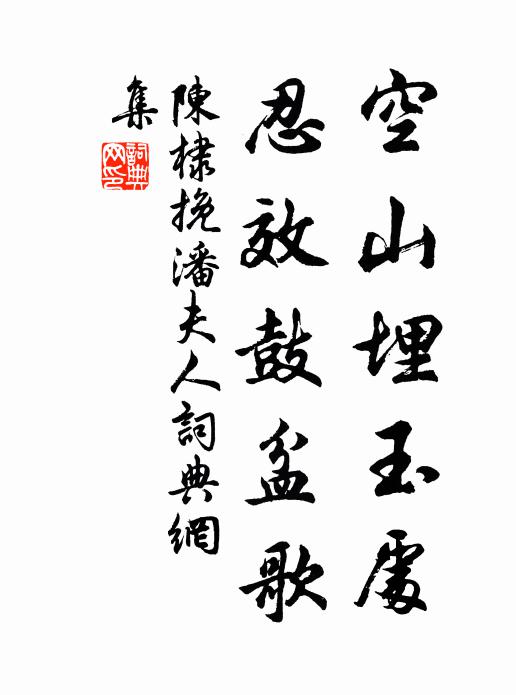 空山埋玉處
忍效鼓盆歌
陳棣挽潘夫人詞典網
集
詞典
网印